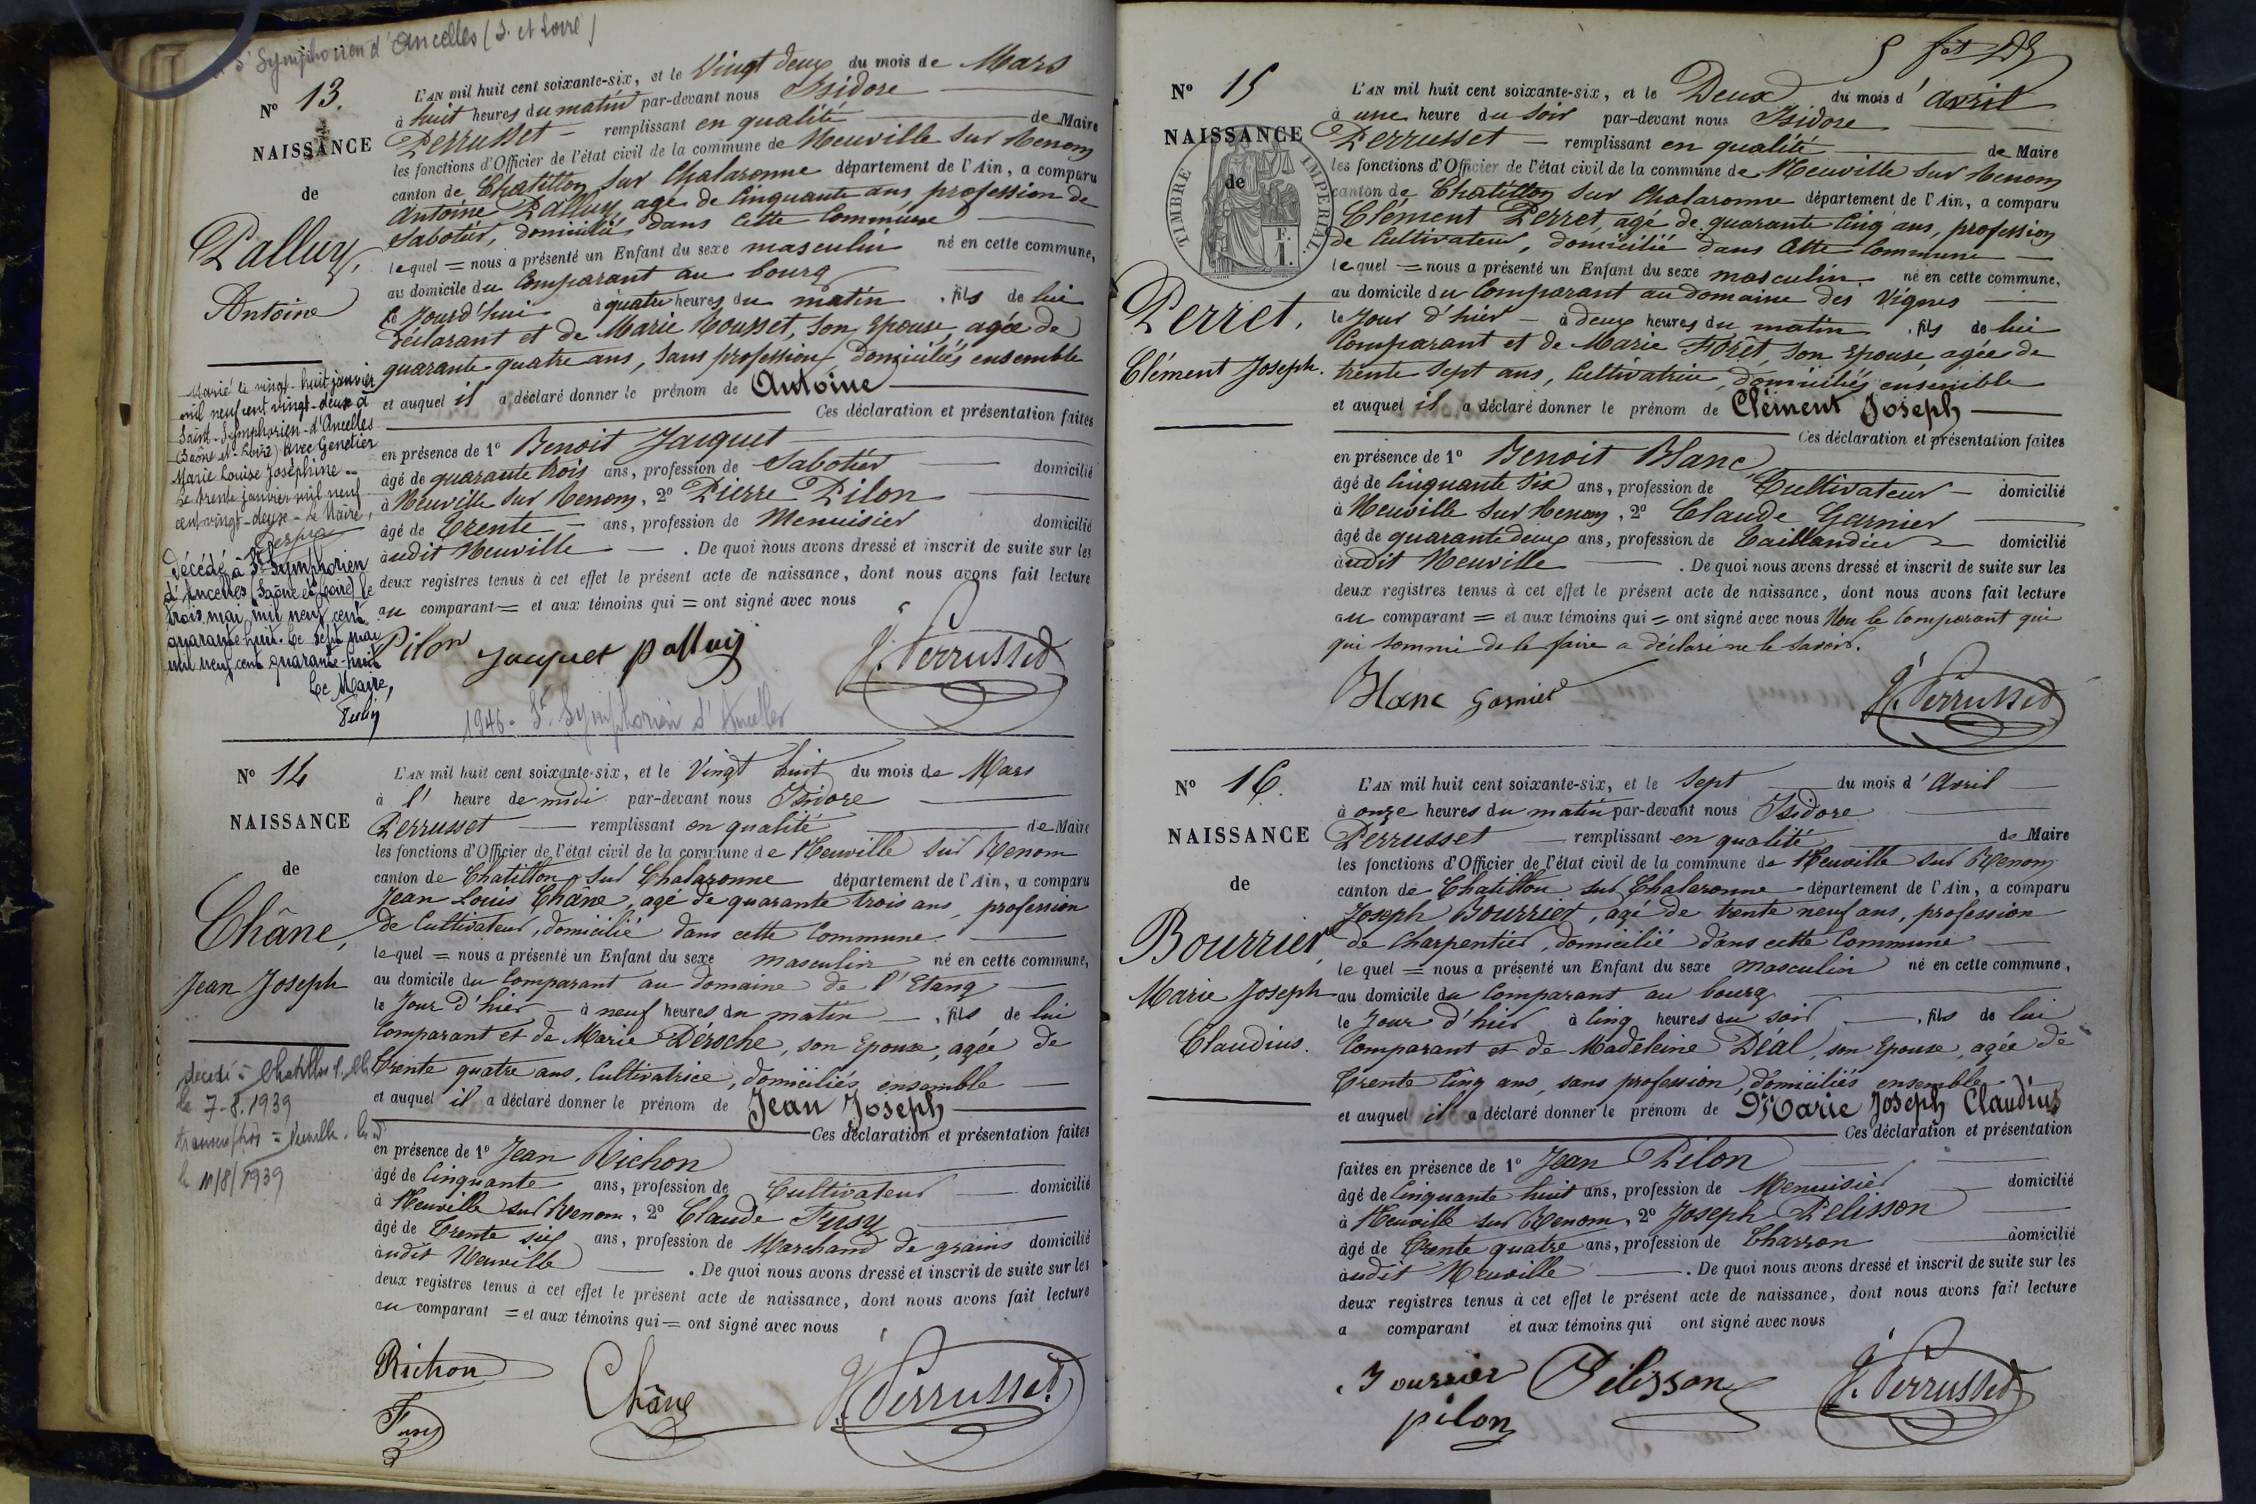 St Symphorien d'Ancelles (S. et Loire)
N° 13.
NAISSANCE
de
Palluy,
Antoine
Marié le vingt-huit janvier
mil neuf cent vingt-deux à
Saint-Symphorien-d'Ancelles
(Saône-et-Loire) avec Genetier
Marie Louise Joséphine
Le trente janvier mil neuf
cent vingt-deux - Le Maire,
Décédé à St Symphorien
d'Ancelles (Saône et Loire) le
trois mai mil neuf cent
quarante huit. Le sept mai
mil neuf cent quarante-huit
Le Maire,
L'AN mil huit cent soixante-six, et le Vingt deux du mois de Mars
à huit heures du matin par-devant nous Isidore
Perrusset - remplissant en qualité de Maire
les fonctions d'Officier de l'état civil de la commune de Neuville sur Renom
canton de Chatillon sur Chalaronne département de l'Ain, a comparu
Antoine Palluy, agé de Cinquante ans profession de
Sabotier, domicilié dans cette Commune
lequel = nous a présenté un Enfant du sexe masculin né en cette commune,
au domicile du Comparant au bourg
ce Jourd'hui à quatre heures du matin, fils de lui
déclarant et de Marie Rousset, son Epouse, agée de
quarante quatre ans, sans profession, domiciliés ensemble
et auquel il a déclaré donner le prénom de Antoine
Ces déclaration et présentation faites
en présence de 1° Benoit Jacquet
âgé de quarante trois ans, profession de Sabotier domicilié
à Neuville sur Renom, 2° Pierre Pilon
âgé de Trente - ans, profession de Menuisier domicilié
audit Neuville . De quoi nous avons dressé et inscrit de suite sur les
deux registres tenus à cet effet le présent acte de naissance, dont nous avons fait lecture
au comparant = et aux témoins qui = ont signé avec nous
Pilon Jacquet Palluy J. Perrusset
1946 - St Symphorien d'Ancelles
N° 14
NAISSANCE
de
Châne,
Jean Joseph
décédé à Chatillon s. Ch.
le 7-8.1939
le 10/8/1939
L'AN mil huit cent soixante-six, et le Vingt huit du mois de Mars
à l' heure de midi par-devant nous Isidore
Perrusset remplissant en qualité de Maire
les fonctions d'Officier de l'état civil de la commune de Neuville sur Renom
canton de Chatillon sur Chalaronne département de l'Ain, a comparu
Jean Louis Châne, agé de quarante trois ans, profession
de Cultivateur, domicilié dans cette Commune.
lequel = nous a présenté un Enfant du sexe masculin né en cette commune,
au domicile du Comparant au domaine de l'Etang
le Jour d'hier - à neuf heures du matin, fils de lui
Comparant et de Marie Déroche, son Epouse, agée de
Trente quatre ans, Cultivatrice, domiciliés ensemble
et auquel il a déclaré donner le prénom de Jean Joseph
Ces déclaration et présentation faites
en présence de 1° Jean Richon
âgé de Cinquante ans, profession de Cultivateur domicilié
à Neuville sur Renom, 2° Claude Fusy
âgé de Trente six ans, profession de Marchand de grains domicilié
audit Neuville . De quoi nous avons dressé et inscrit de suite sur les
deux registres tenus à cet effet le présent acte de naissance, dont nous avons fait lecture
au comparant = et aux témoins qui = ont signé avec nous
Richon Châne J. Perrusset
Fusy
5
N° 15
NAISSANCE
de
TIMBRE IMPERIAL
F.
1.
Perret,
Clément Joseph.
L'AN mil huit cent soixante-six, et le Deux du mois d'avril
à une heure du soir par-devant nous Isidore
Perrusset - remplissant en qualité de Maire
les fonctions d'Officier de l'état civil de la commune de Neuville sur Renom
canton de Chatillon sur Chalaronne département de l'Ain, a comparu
Clément Perret, agé de quarante Cinq ans, profession
de Cultivateur, domicilié dans Cette Commune
lequel = nous a présenté un Enfant du sexe masculin né en cette commune,
au domicile du Comparant au domaine des Vignes
le Jour d'hier - à deux heures du matin, fils de lui
Comparant et de Marie Forêt, son Epouse, agée de
trente Sept ans, Cultivatrice, domiciliés ensemble
et auquel il a déclaré donner le prénom de Clément Joseph
Ces déclaration et présentation faites
en présence de 1° Benoit Blanc
âgé de Cinquante Six ans, profession de Cultivateur - domicilié
à Neuville sur Renom, 2° Claude Garnier
âgé de quarante deux ans, profession de Taillandier domicilié
audit Neuville . De quoi nous avons dressé et inscrit de suite sur les
deux registres tenus à cet effet le présent acte de naissance, dont nous avons fait lecture
au comparant = et aux témoins qui = ont signé avec nous Non le Comparant qui
qui sommé de le faire a déclaré ne le savoir.
Blanc Garnier J. Perrusset
N° 16.
NAISSANCE
de
Bourrier,
Marie Joseph
Claudius.
L'AN mil huit cent soixante-six, et le Sept du mois d'Avril
à onze heures du matin par-devant nous Isidore
Perrusset remplissant en qualité de Maire
les fonctions d'Officier de l'état civil de la commune de Neuville sur Renom
canton de Chatillon sur Chalaronne département de l'Ain, a comparu
Joseph Bourrier, agé de trente neuf ans, profession
de Charpentier, domicilié dans cette Commune
lequel = nous a présenté un Enfant du sexe masculin né en cette commune,
au domicile du Comparant au bourg
le Jour d'hier à Cinq heures du soir, fils de lui
Comparant et de Madeleine Déal, son Epouse, agée de
Trente Cinq ans, sans profession, domiciliés ensemble
et auquel il a déclaré donner le prénom de Marie Joseph Claudius
Ces déclaration et présentation
faites en présence de 1° Jean Pilon
âgé de Cinquante huit ans, profession de Menuisier domicilié
à Neuville sur Renom, 2° Joseph Pelisson
âgé de Trente quatre ans, profession de Charron domicilié
audit Neuville . De quoi nous avons dressé et inscrit de suite sur les
deux registres tenus à cet effet le présent acte de naissance, dont nous avons fait lecture
a comparant et aux témoins qui ont signé avec nous
Bourrier Pelisson J. Perrusset
pilon